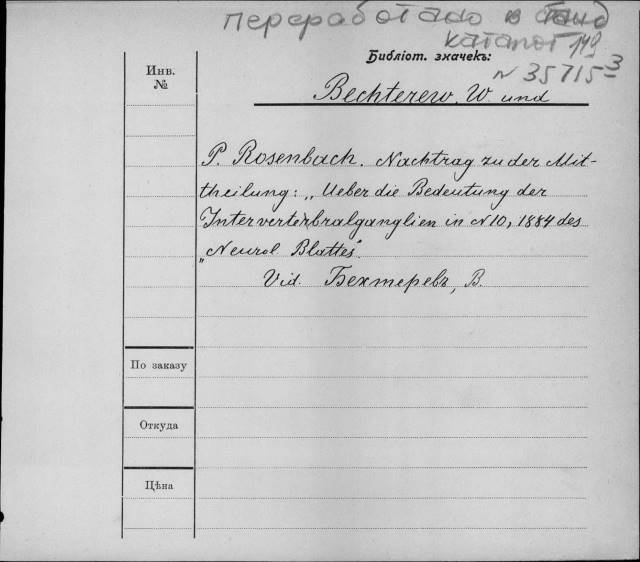 переработано в
каталог 149
Библіот. значекъ:
№ 35715-3
Инв.
№
Bechterew, W. und
P. Rosenbach. Nachtrag zu der Mit-
theilung: „Ueber die Bedeutung der
Intervertebralganglien in N10, 1884 des
„Neurol. Blattes".
Vid. Бехтеревъ, В.
По заказу
Откуда
Цѣна